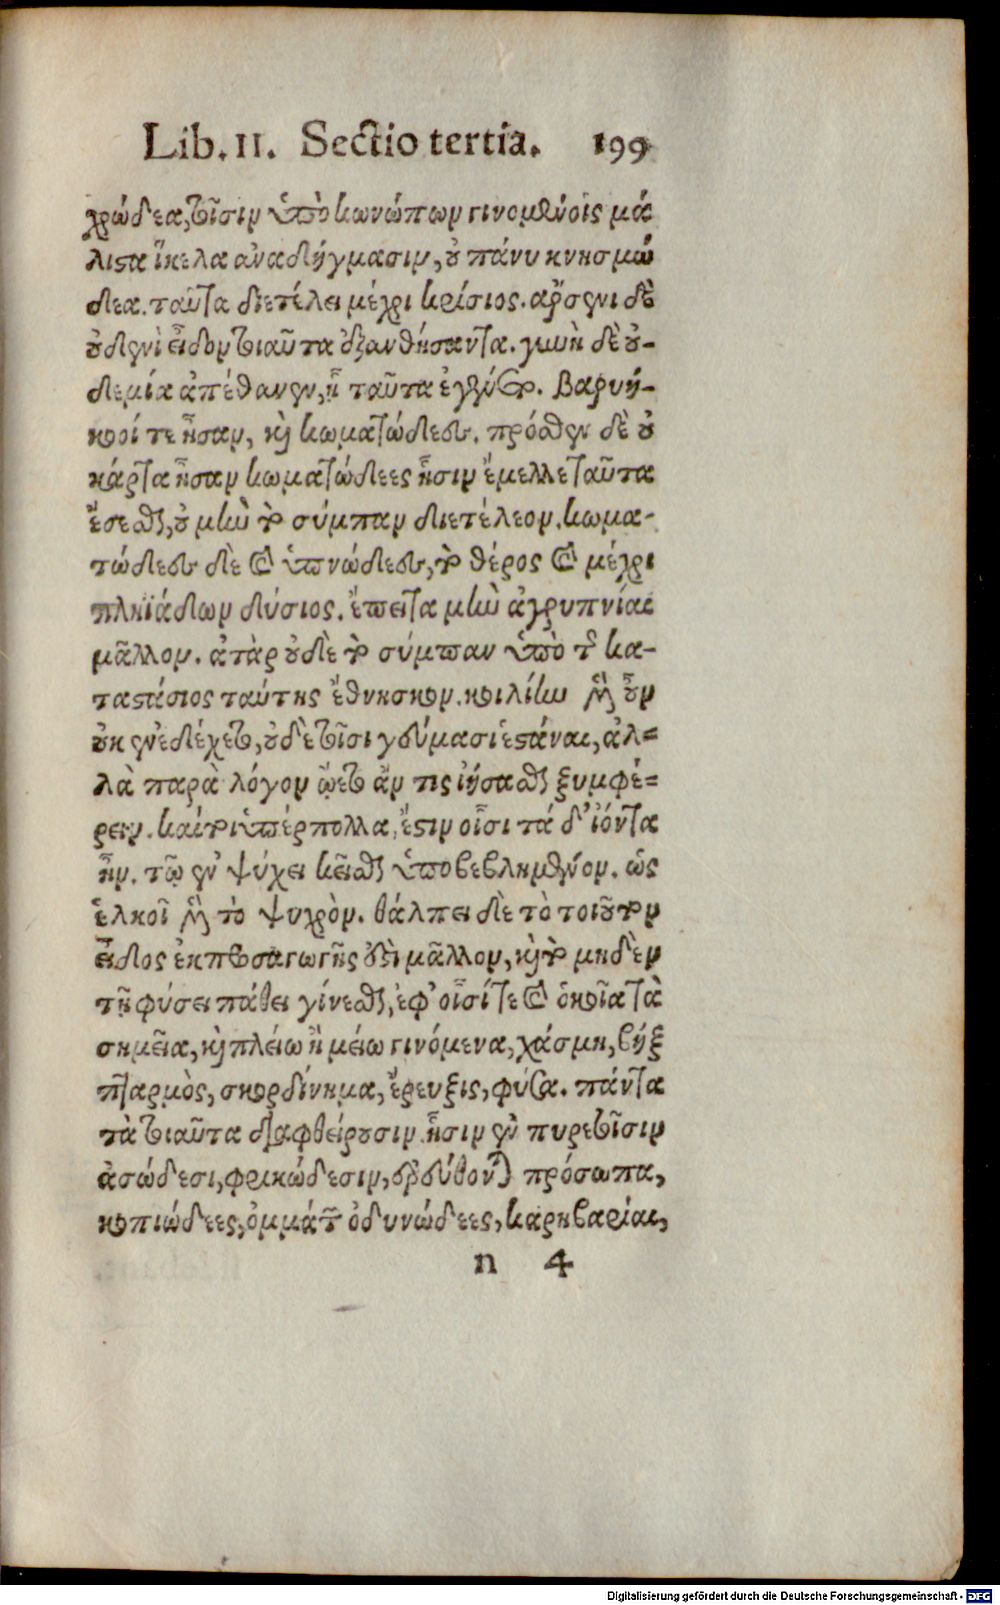 Lib. II. Sectio tertia. 199
χρώδεα, τοῖσιν ὑπὸ κωνώπων γινομένοις μά
λιστα ἴκελα ἀναδήγμασιν, οὐ πάνυ κνησμώ
δεα. ταῦτα διετέλει μέχρι κρίσιος. ἄρσενι δὲ
οὐδενὶ εἶδον τοιαῦτα ἐξανθήσαντα. γυνὴ δὲ οὐ-
δεμία ἀπέθανεν, ᾗ ταῦτα ἐγένετο. βαρυή-
κοοί τε ἦσαν, καὶ κωματώδεες. πρόσθεν δὲ οὐ
κάρτα ἦσαν κωματώδεες ᾗσιν ἔμελλε ταῦτα
ἔσεσθαι, οὐ μὴν τὸ σύμπαν διετέλεον. κωμα-
τώδεες δὲ καὶ ὑπνώδεες, τὸ θέρος καὶ μέχρι
πληϊάδων δύσιος. ἔπειτα μὴν ἀγρυπνίαι
μᾶλλον. ἀτὰρ οὐδὲ τὸ σύμπαν ὑπὸ τῆς κα-
ταστάσιος ταύτης ἔθνησκον. κοιλίην μὲν οὖν
οὐκ ἐνεδέχετο, οὐδὲ τοῖσι γεύμασι ἑστάναι, ἀλ=
λὰ παρὰ λόγον ᾤετο ἄν τις ἰήσασθαι ξυμφέ=
ρειν. καίτοι ὑπέρπολλα, ἔστιν οἷσι τά δ' ἰόντα
ἦν. τῷ ἐν ψύχει κεῖσθαι ὑποβεβλημένον. ὡς
ἑλκοῖ μὲν τὸ ψυχρὸν. θάλπει δὲ τὸ τοιοῦτον
εἶδος ἐκ προσαγωγῆς ἔτι μᾶλλον, καὶ τὸ μηδὲν
τῇ φύσει πάθει γίνεσθαι, ἐφ' οἷσί τε καὶ ὁκοῖα τὰ
σημεῖα, καὶ πλείω ἢ μείω γινόμενα, χάσμη, βήξ
πταρμὸς, σκορδίνημα, ἔρευξις, φύσα. πάντα
τὰ τοιαῦτα διαφθείρουσιν. ᾗσιν ἐν πυρετοῖσιν
ἀσώδεσι, φρικώδεσιν, ἐρεύθονται πρόσωπα,
κοπιώδεες, ὀμμάτων ὀδυνώδεες, καρηβαρίαι,
n 4
Digitalisierung gefördert durch die Deutsche Forschungsgemeinschaft - DFG